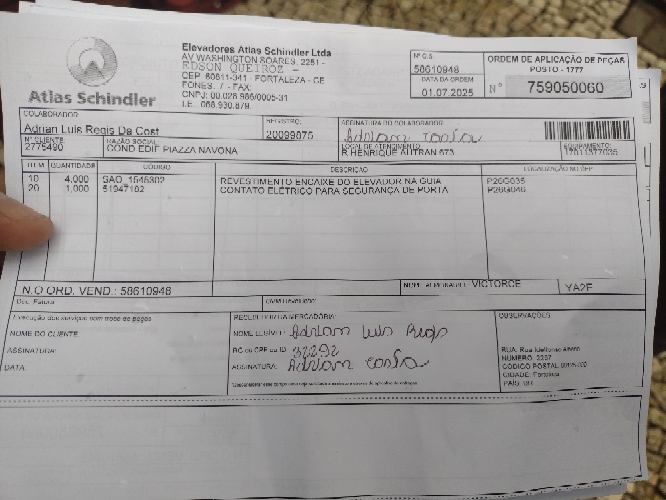 Atlas Schindler
Elevadores Atlas Schindler Ltda
AV WASHINGTON SOARES, 2251 -
EDSON QUEIROZ -
CEP 60811-341 - FORTALEZA - CE
FONES: / - FAX:
CNPJ: 00.028.986/0005-31
I.E. 068.930.879.
Nº O.S.
58610948
DATA DA ORDEM
01.07.2025
ORDEM DE APLICAÇÃO DE PEÇAS
POSTO - 1777
Nº 759050060
COLABORADOR
Adrian Luis Regis Da Cost
REGISTRO:
20099875
ASSINATURA DO COLABORADOR
Adrian Costa
Nº CLIENTE
2775490
RAZÃO SOCIAL
COND EDIF PIAZZA NAVONA
LOCAL DE ATENDIMENTO
R HENRIQUE AUTRAN 673
EQUIPAMENTO:
ITEM QUANTIDADE CÓDIGO DESCRIÇÃO LOCALIZAÇÃO NO DEP
10 4,000 SAO_1545302 REVESTIMENTO ENCAIXE DO ELEVADOR NA GUIA P26G035
20 1,000 51947182 CONTATO ELÉTRICO PARA SEGURANÇA DE PORTA P26G040
N.O ORD. VEND.: 58610948
VICTORCE
YA2F
Doc. Fatura
Execução dos serviços com troca de peças
NOME DO CLIENTE:
ASSINATURA:
DATA:
RECEBEDOR DA MERCADORIA:
NOME LEGÍVEL: Adrian Luis Regis
RG ou CPF ou ID:
ASSINATURA: Adrian Costa
OBSERVAÇÕES
RUA: Rua Ildefonso Albano
NUMERO: 2267
CODIGO POSTAL
CIDADE: Fortaleza
PAÍS: BR